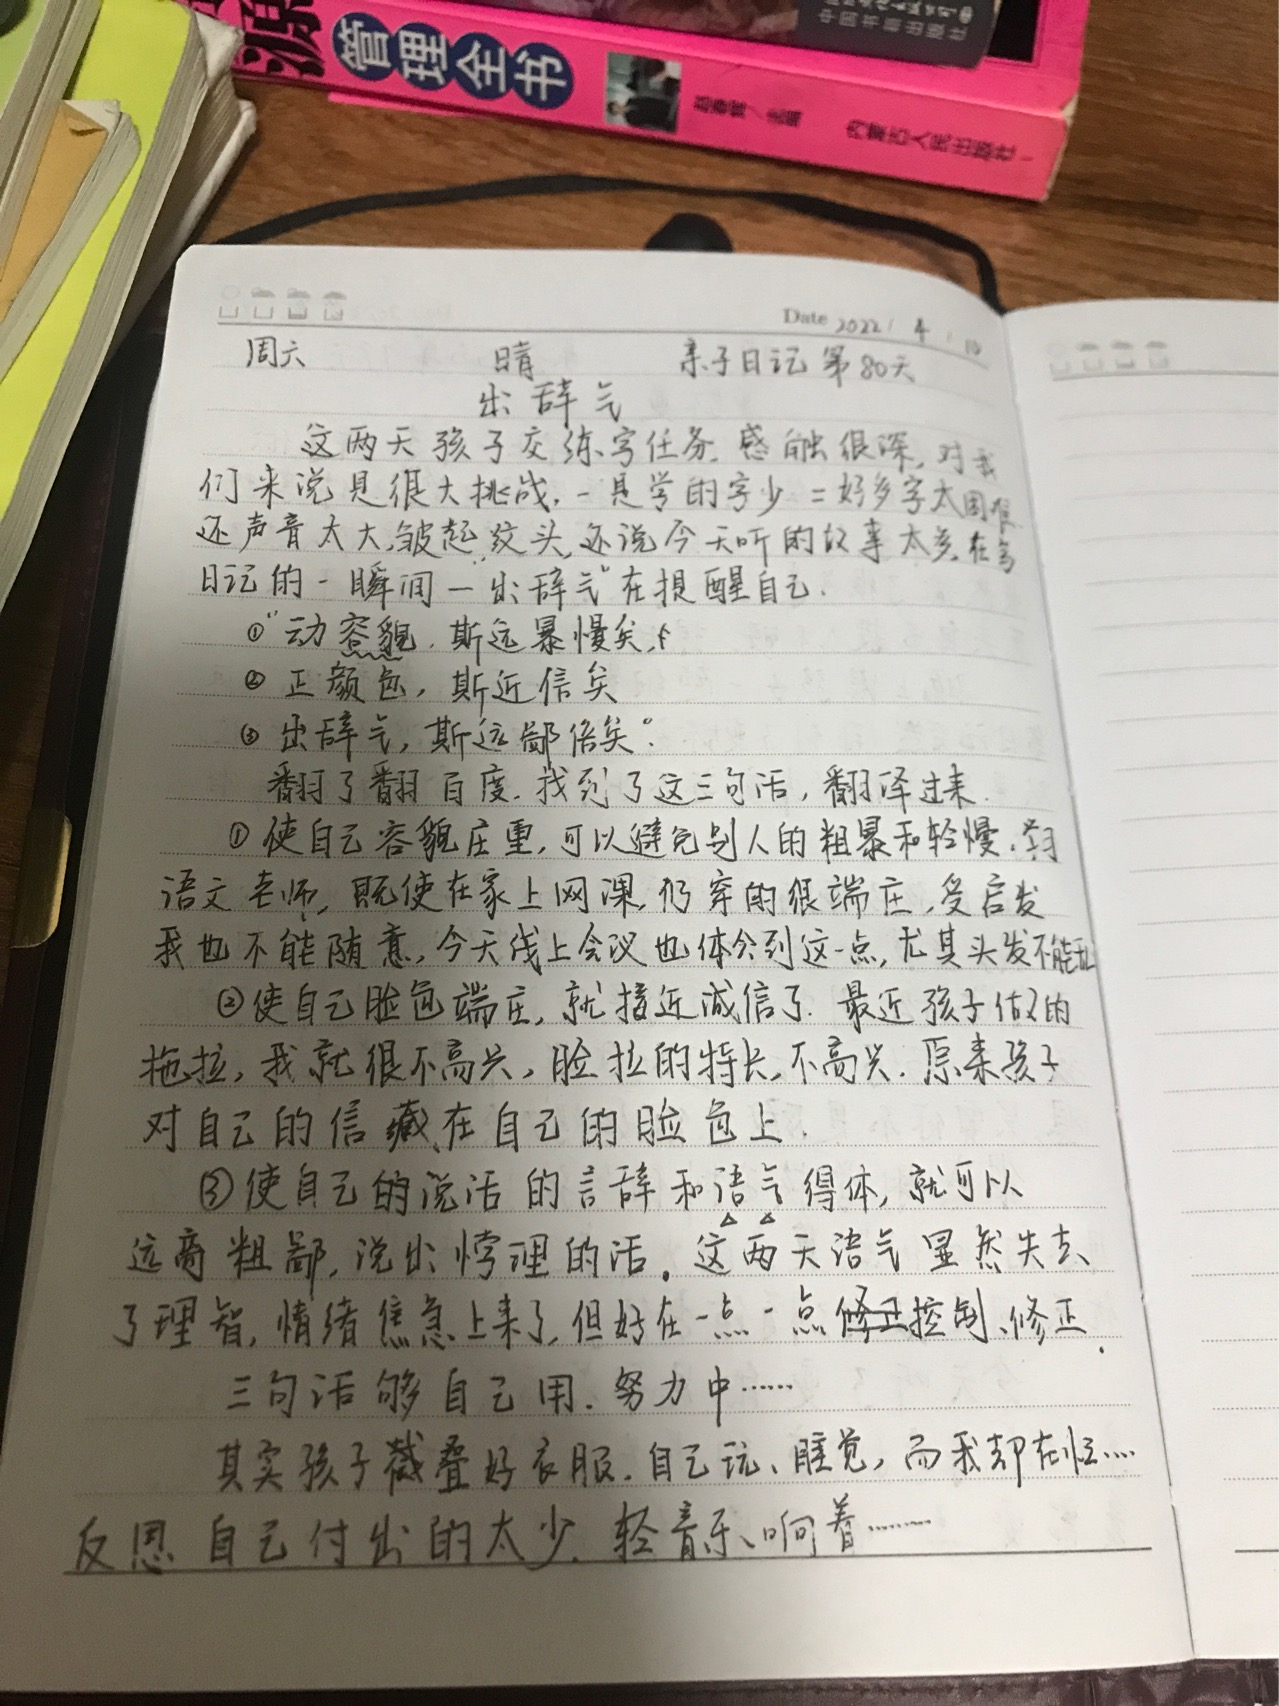 管理全书
内蒙古人民出版社
Date 2022 / 4 / 10
周六 晴 亲子日记 第80天
出辞气
这两天孩子交练字任务，感触很深，对我
们来说是很大挑战，一是学的字少 二好多字太困难
还声音太大，皱起纹头，还说今天听的故事太多，在写
日记的一瞬间一"出辞气"在提醒自己.
①"动容貌，斯远暴慢矣，
② 正颜色，斯近信矣
③ 出辞气，斯远鄙倍矣"
翻了翻百度，找到了这三句话，翻译过来.
①使自己容貌庄重，可以避免别人的粗暴和轻慢，学习
语文老师，既使在家上网课，仍穿的很端庄，受启发
我也不能随意，今天线上会议也体会到这一点，尤其头发不能乱
②使自己脸色端庄，就接近诚信了. 最近孩子做的
拖拉，我就很不高兴，脸拉的特长，不高兴. 原来孩子
对自己的信藏在自己的脸色上.
③使自己的说话的言辞和语气得体，就可以
远离粗鄙，说出悖理的话。这两天语气显然失去
了理智，情绪焦急上来了，但好在一点一点修正控制、修正.
三句话够自己用. 努力中……
其实孩子叠好衣服，自己玩、睡觉，而我却在忙……
反思自己付出的太少. 轻音乐、响着………